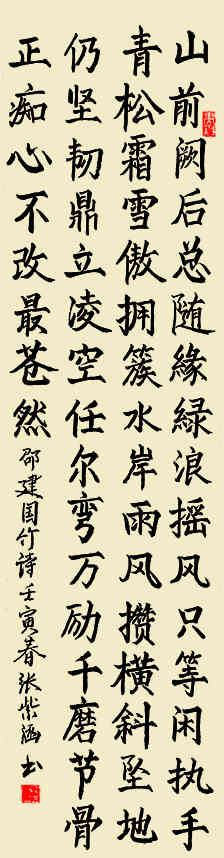 山前阙后总随緣緑浪摇风只等闲执手
青松霜雪傲拥簇水岸雨风攒横斜坠地
仍坚韧鼎立凌空任尔弯万励千磨节骨
正痴心不改最苍然邵建国竹诗壬寅春张紫涵书